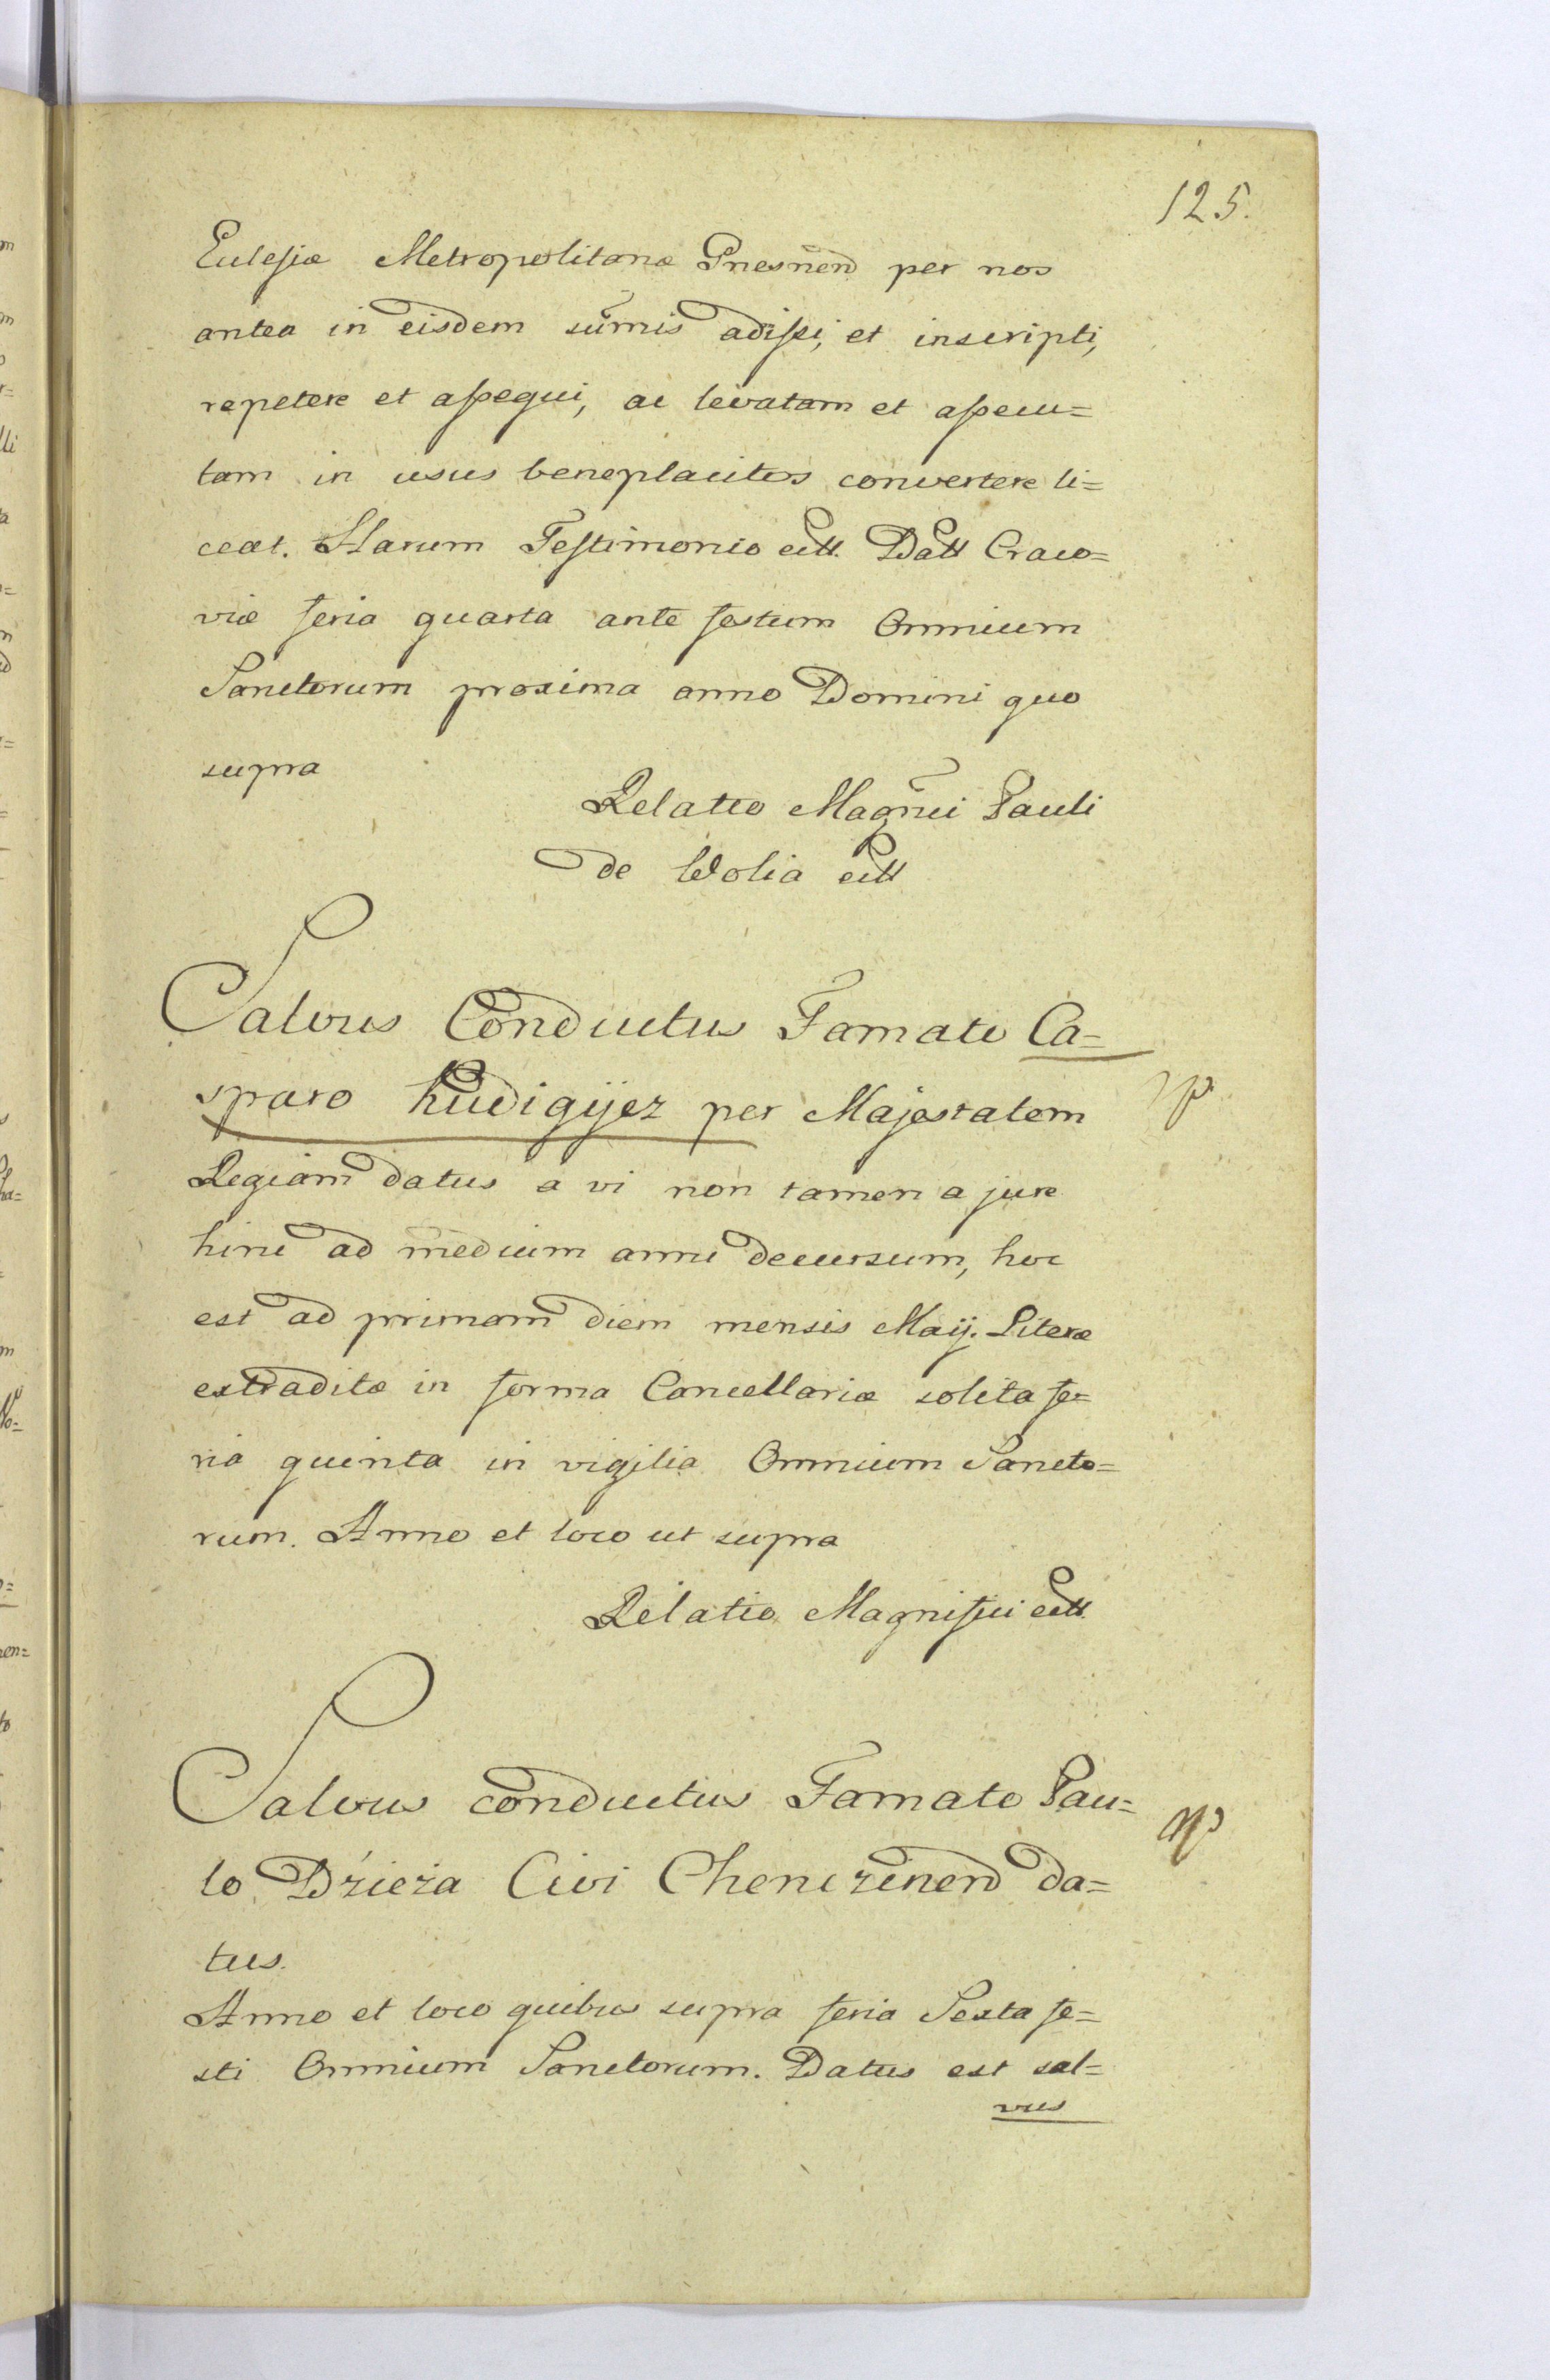 125.
Eclesiæ Metropolitanæ Gnesnen̄ per nos
antea in eisdem sum̄is adissi, et inscripti,
repetere et assequi, ac levatam et assecu=
tam in usus beneplacitos convertere li=
ceat. Harum Testimonio ettt. Dattt Craco=
viæ feria quarta ante festum Omnium
Sanctorum proxima anno Domini quo
supra
Relatio Magn̄ci Pauli
de Wolia ettt
Salvus Conductus Famato Ca=
sparo Hudigijez per Majestatem
Regiam datus a vi non tamen a jure
hinc ad medium anni decursum, hoc
est ad primam diem mensis Maij. Literæ
extraditæ in forma Cancellariæ solita fe=
ria quinta in vigilia Omnium Sancto=
rum. Anno et loco ut supra
Relatio Magnifici ettt.
Salvus conductus Famato Pau=
lo Dzieża Civi Chenczinen̄ da=
tus.
Anno et loco quibus supra feria Sexta fe=
sti Omnium Sanctorum. Datus est sal=
vus